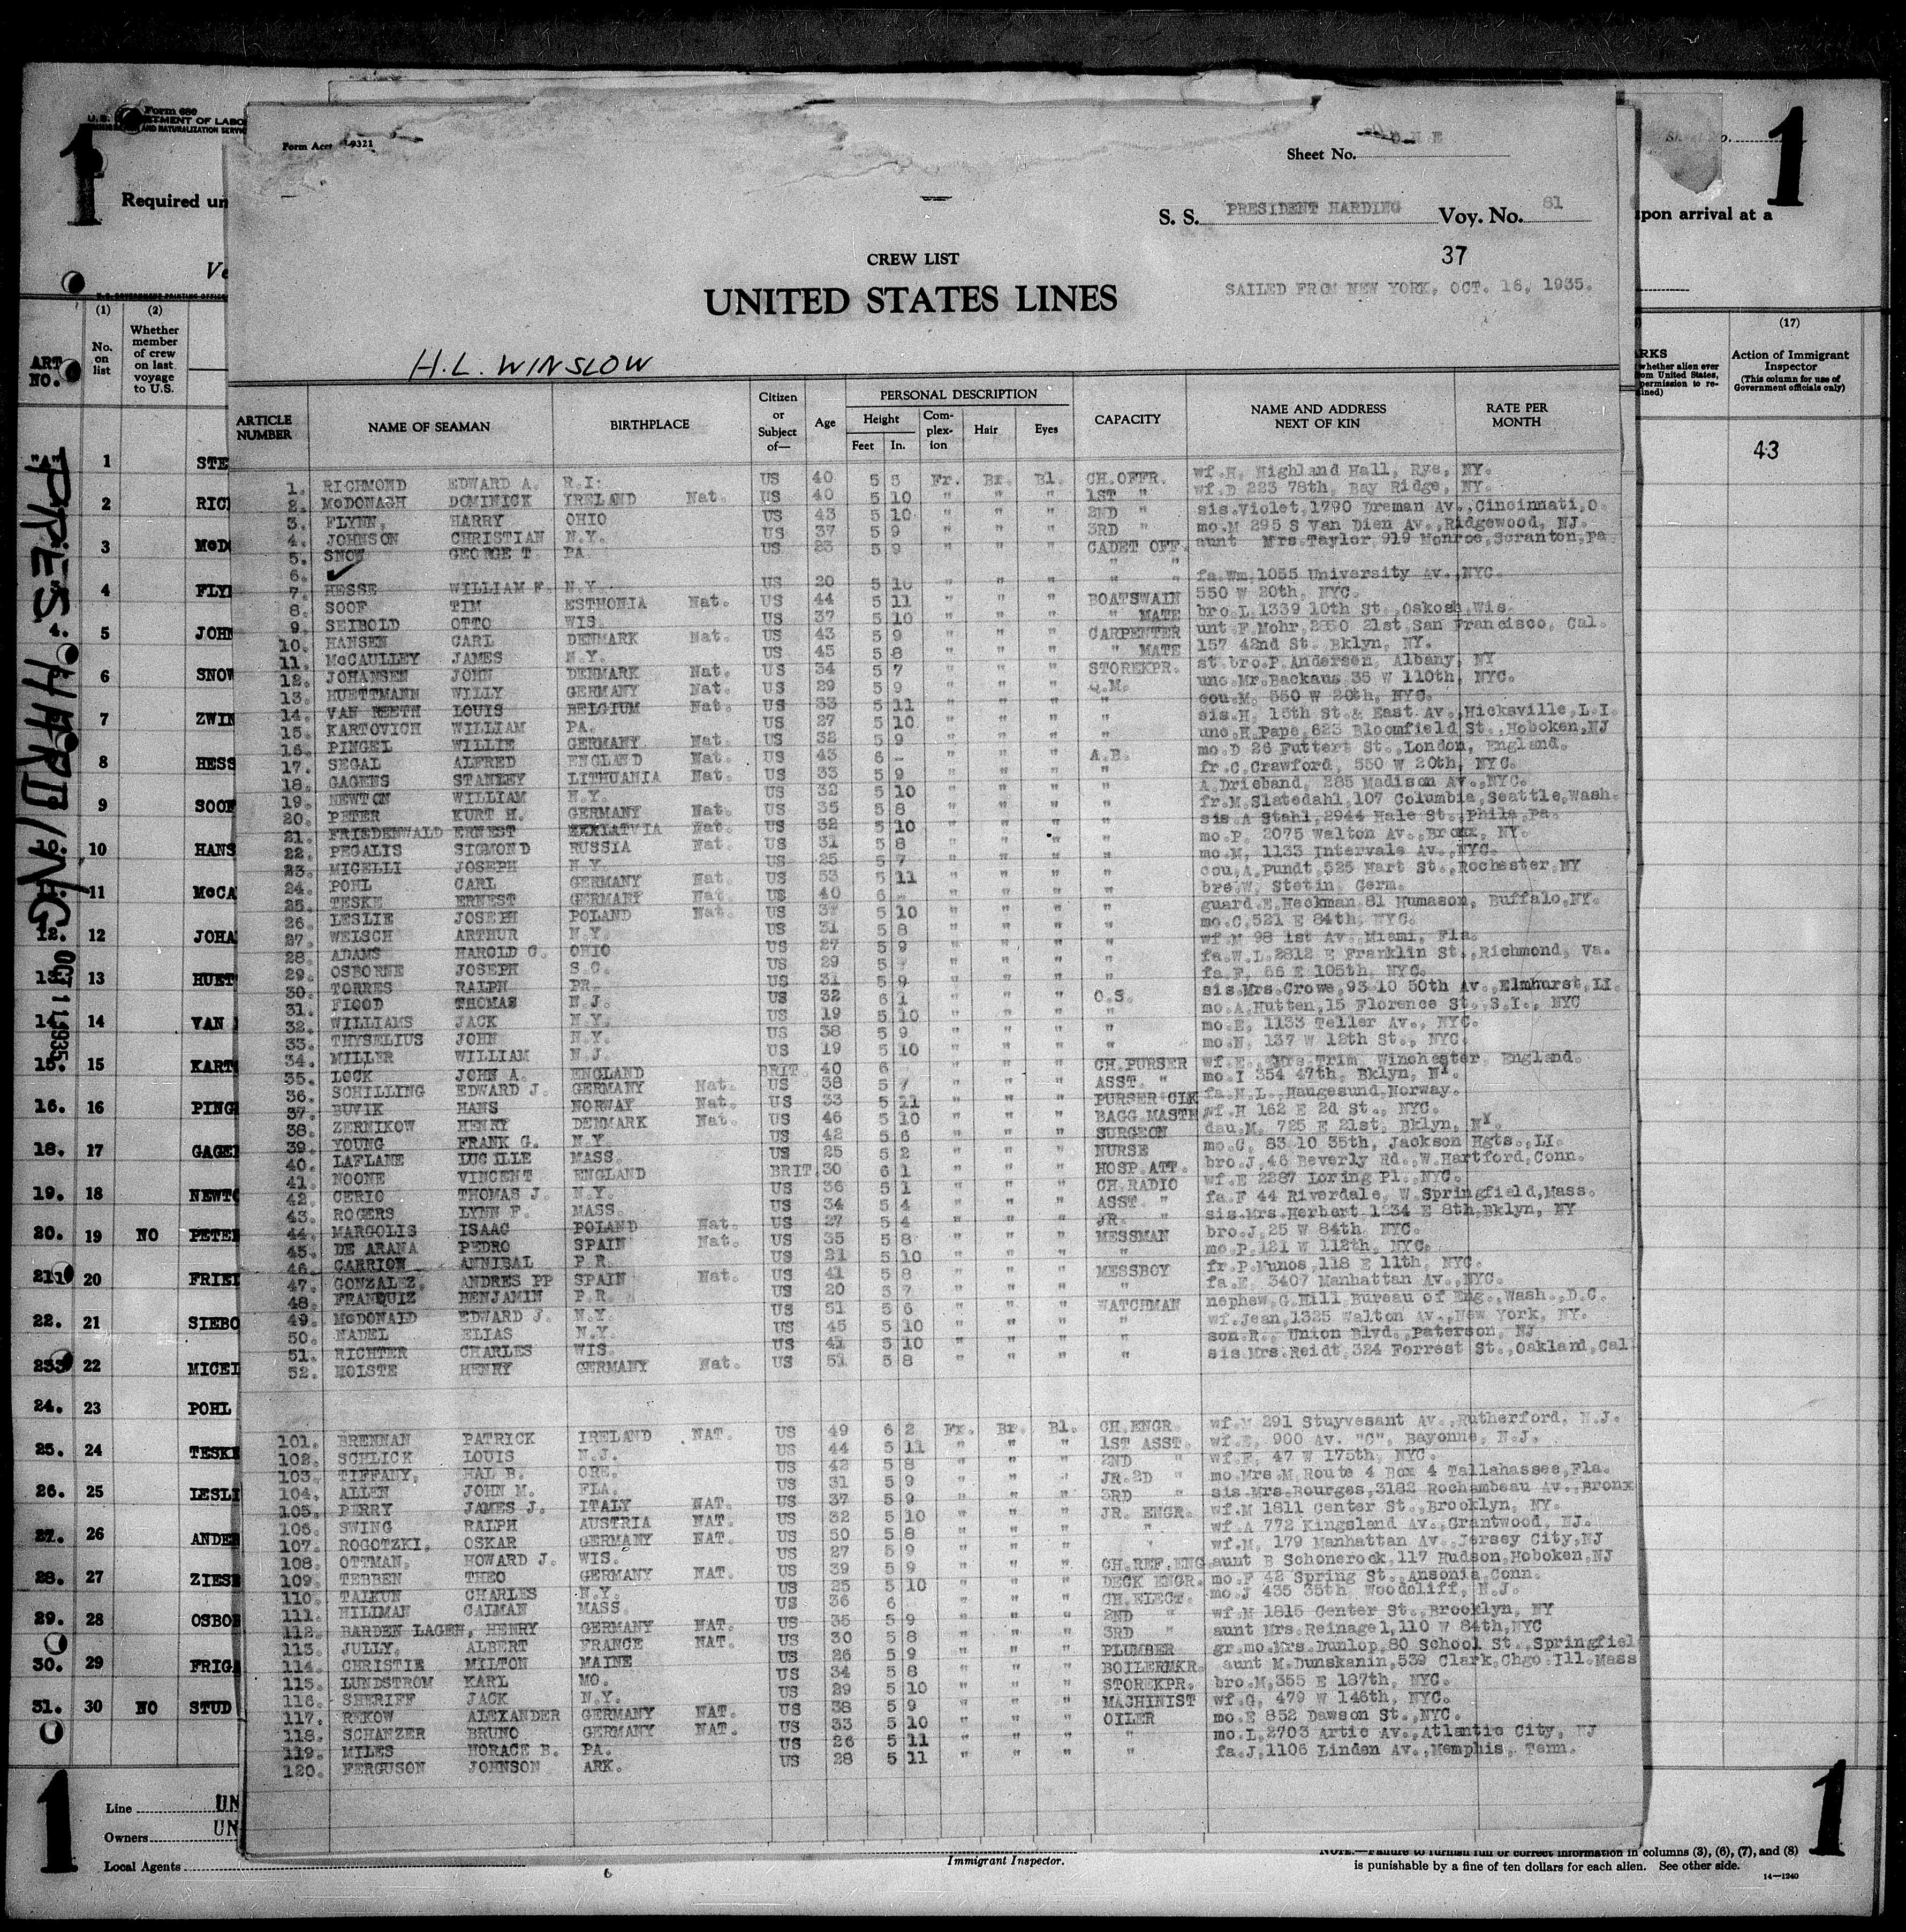 Form 680
U. S. DEPARTMENT OF LABOR
IMMIGRATION AND NATURALIZATION SERVICE
1
Required un
Ve
U. S. GOVERNMENT PRINTING OFFICE
Form Acct 19321
Sheet No. ONE
S. S. PRESIDENT HARDING Voy. No. 81
37
CREW LIST
UNITED STATES LINES
SAILED FROM NEW YORK, OCT. 16, 1935.
H.L. WINSLOW
Sheet No.
1
upon arrival at a
ARTICLE NUMBER NAME OF SEAMAN BIRTHPLACE Citizen or Subject of— Age PERSONAL DESCRIPTION Height Feet In. Complexion Hair Eyes CAPACITY NAME AND ADDRESS NEXT OF KIN RATE PER MONTH
1. RICHMOND EDWARD A. R.I. US 40 5 8 Fr. Br. Bl. CH.OFFR. wf.H. Highland Hall, Rye, NY.
2. McDONAGH DOMINICK IRELAND Nat. US 40 5 10 " " " 1ST " wf.D 223 78th, Bay Ridge, NY.
3. FLYNN, HARRY OHIO US 43 5 10 " " " 2ND " sis.Violet,1790 Dreman Av.,Cincinnati,O.
4. JOHNSON CHRISTIAN N.Y. US 37 5 9 " " " 3RD " mo.M 295 S Van Dien Av.,Ridgewood, NJ.
5. SNOW GEORGE T. PA. US 23 5 9 " " " CADET OFF. aunt Mrs.Taylor,919 Monroe,Scranton,Pa.
6. " "
7. HESSE WILLIAM F. N.Y. US 20 5 10 " " " " " fa.Wm,1055 University Av.,NYC.
8. SOOF TIM ESTHONIA Nat. US 44 5 11 " " " BOATSWAIN 550 W 20th, NYC.
9. SEIBOLD OTTO WIS. US 37 5 10 " " " " MATE bro.L,1339 10th St.,Oskosh,Wis.
10. HANSEN CARL DENMARK Nat. US 43 5 9 " " " CARPENTER unt F.Mohr,2850 21st San Francisco, Cal.
11. McCAULLEY JAMES N.Y. US 45 5 8 " " " " MATE 157 42nd St. Bklyn, NY.
12. JOHANSEN JOHN DENMARK Nat. US 34 5 7 " " " STOREKPR. st.bro.P.Andersen, Albany, NY
13. HUETTMANN WILLY GERMANY Nat. US 29 5 9 " " " Q.M. unc.Mr.Backaus 35 W 110th, NYC.
14. VAN REETH LOUIS BELGIUM Nat. US 33 5 11 " " " " cou.M. 550 W 20th, NYC.
15. KARTOVICH WILLIAM PA. US 27 5 10 " " " " sis.H. 15th St.& East Av.,Hicksville,L.I.
16. PINGEL WILLIE GERMANY Nat. US 32 5 9 " " " " unc.H.Pape,623 Bloomfield St.,Hoboken,NJ
17. SEGAL ALFRED ENGLAND Nat. US 43 6 - " " " A.B. mo.D 26 Futtert St.,London, England.
18. GAGENS STANLEY LITHUANIA Nat. US 33 5 9 " " " " fr.C.Crawford, 550 W 20th, NYC.
19. NEWTON WILLIAM N.Y. US 32 5 10 " " " " A.Drieband, 285 Madison Av.,NYC.
20. PETER KURT H. GERMANY Nat. US 35 5 8 " " " " fr.M.Slatedahl,107 Columbia,Seattle,Wash.
21. FRIEDENWALD ERNEST LATVIA Nat. US 32 5 10 " " " " sis.A Stahl,2944 Hale St.,Phila,Pa.
22. PEGALIS SIGMOND RUSSIA Nat. US 31 5 8 " " " " mo.P. 2075 Walton Av.,Bronx, NY.
23. MICELLI JOSEPH N.Y. US 25 5 7 " " " " mo.M, 1133 Intervale Av.,NYC.
24. POHL CARL GERMANY Nat. US 53 5 11 " " " " cou.A.Pundt,525 Hart St.,Rochester,NY
25. TESKE ERNEST GERMANY Nat. US 40 6 - " " " " bro.W. Stetin, Germ.
26. LESLIE JOSEPH POLAND Nat. US 37 5 10 " " " " guard.E.Heckman 81 Humason, Buffalo,NY.
27. WEISCH ARTHUR N.Y. US 31 5 8 " " " " mo.C,521 E 84th, NYC.
28. ADAMS HAROLD G. OHIO US 27 5 9 " " " " wf.M 98 1st Av.,Miami, Fla.
29. OSBORNE JOSEPH S.C. US 29 5 7 " " " " fa.W.L.2812 E Franklin St.,Richmond, Va.
30. TORRES RALPH PR. US 31 5 9 " " " " fa.F, 66 E 105th, NYC.
31. FLOOD THOMAS N.J. US 32 6 1 " " " O.S. sis.Mrs.Crowe,93-10 50th Av.,Elmhurst,LI.
32. WILLIAMS JACK N.Y. US 19 5 10 " " " " mo.A.Hutten,15 Florence St.,S.I., NYC
33. THYSELIUS JOHN N.Y. US 38 5 9 " " " " mo.E, 1133 Teller Av., NYC.
34. MILLER WILLIAM N.J. US 19 5 10 " " " " mo.N, 137 W 12th St., NYC.
35. LOCK JOHN A. ENGLAND BRIT. 40 6 " " " CH.PURSER wf.E. Winchester England.
36. SCHILLING EDWARD J. GERMANY Nat. US 38 5 7 " " " ASST. " mo.I 354 47th, Bklyn, NY.
37. BUVIK HANS NORWAY Nat. US 33 5 11 " " " PURSER CLK fa.N.L., Haugesund,Norway.
38. ZERNIKOW HENRY DENMARK Nat. US 46 5 10 " " " BAGG.MASTR wf.H 162 E 2d St., NYC.
39. YOUNG FRANK G. N.Y. US 42 5 6 " " " SURGEON dau.M. 725 E 21st, Bklyn, NY.
40. LAFLAME LUCILLE MASS. US 25 5 2 " " " NURSE mo.C, 83 10 35th, Jackson Hgts.,LI.
41. NOONE VINCENT ENGLAND BRIT. 30 6 1 " " " HOSP.ATT. bro.J,46 Beverly Rd.,W.Hartford,Conn.
42. CERIO THOMAS J. N.Y. US 36 5 1 " " " CH.RADIO wf.E 2287 Loring Pl.,NYC.
43. ROGERS LYNN F. MASS. US 34 5 4 " " " ASST. " fa.F 44 Riverdale, W.Springfield,Mass.
44. MARGOLIS ISAAC POLAND Nat. US 27 5 4 " " " JR. " sis.Mrs.Herbert 1234 E 8th,Bklyn, NY
45. DE ARANA PEDRO SPAIN Nat. US 35 5 8 " " " MESSMAN bro.J,25 W 84th, NYC.
46. CARRION ANNIBAL P.R. US 21 5 10 " " " " mo.P,121 W 112th, NYC.
47. GONZALEZ, ANDRES PP SPAIN Nat. US 41 5 8 " " " MESSBOY fr.P.Munos,118 E 11th, NYC.
48. FRANQUIZ BENJAMIN P.R. US 20 5 7 " " " " fa.E, 3407 Manhattan Av.,NYC.
49. McDONALD EDWARD J. N.Y. US 51 5 6 " " " WATCHMAN nephew,G.Hill,Bureau of Eng.,Wash.,D.C.
50. NADEL ELIAS N.Y. US 45 5 10 " " " " wf.Jean,1325 Walton Av.,New York, NY.
51. RICHTER CHARLES WIS. US 41 5 10 " " " " son.R., Union Blvd. Paterson, NJ
52. MOISTE HENRY GERMANY Nat. US 51 5 8 " " " " sis.Mrs.Reidt,324 Forrest St.,Oakland,Cal
101. BRENNAN PATRICK IRELAND NAT. US 49 6 2 Fr. Br. Bl. CH.ENGR. wf.M 291 Stuyvesant Av.,Rutherford, N.J.
102. SCHLICK LOUIS N.J. US 44 5 11 " " " 1ST ASST. wf.E, 900 Av. "C", Bayonne, N.J.
103. TIFFANY, HAL B. ORE. US 42 5 8 " " " 2ND " wf.F, 47 W 175th, NYC.
104. ALLEN JOHN M. FLA. US 31 5 9 " " " JR.2D " mo.Mrs.M,Route 4 Box 4 Tallahassee,Fla.
105. PERRY JAMES J. ITALY NAT. US 37 5 9 " " " 3RD " sis.Mrs.Bourges,3182 Rochambeau Av.,Bronx
106. SWING RALPH AUSTRIA NAT. US 32 5 10 " " " JR. ENGR. wf.M 1811 Center St.,Brooklyn, NY.
107. ROGOTZKI, OSKAR GERMANY NAT. US 50 5 8 " " " " wf.A 772 Kingsland Av.,Grantwood, NJ.
108. OTTMAN, HOWARD J. WIS. US 27 5 9 " " " " wf.M, 179 Manhattan Av.,Jersey City,NJ
109. TEBBEN THEO GERMANY NAT. US 39 5 9 " " " CH.REF.ENG aunt B Schonerock,117 Hudson,Hoboken,NJ
110. TALKUN CHARLES N.Y. US 25 5 10 " " " DECK ENGR. mo.F 42 Spring St.,Ansonia,Conn.
111. HILIMAN CAIMAN MASS. US 36 6 " " " CH.ELECT. mo.J 435 35th, Woodcliff, N.J.
112. BARDEN LAGEN, HENRY GERMANY NAT. US 35 5 9 " " " 2ND " wf.M 1815 Center St.,Brooklyn, NY
113. JULLY, ALBERT FRANCE NAT. US 30 5 8 " " " 3RD " aunt Mrs.Reinagel,110 W 84th,NYC
114. CHRISTIE MILTON MAINE US 26 5 9 " " " PLUMBER gr.mo.Mrs.Dunlop,80 School St.,Springfiel
115. LUNDSTROM KARL MO. US 34 5 8 " " " BOILERMKR. aunt M.Dunskanin,539 Clark,Chgo.Ill.Mass
116. SHERIFF JACK N.Y. US 29 5 10 " " " STOREKPR. bro.M,355 E 187th, NYC.
117. REKOW ALEXANDER GERMANY NAT. US 38 5 9 " " " MACHINIST wf.G, 479 W 146th, NYC.
118. SCHANZER BRUNO GERMANY NAT. US 33 5 10 " " " OILER mo.E 852 Dawson St.,NYC.
119. MILES HORACE B. PA. US 26 5 11 " " " " mo.L,2703 Artic Av.,Atlantic City, NJ
120. FERGUSON JOHNSON ARK. US 28 5 11 " " " " fa.J,1106 Linden Av.,Memphis, Tenn.
ART NO.
(1) No. on list
(2) Whether member of crew on last voyage to U.S.
"A" 1 STE
2 RIC
3 McDO
4 FLY
4. 5 JOHN
6 SNOW
7 ZWIN
8 HESS
9 SOOF
10 HANS
11 McCA
12. 12 JOHA
13. 13 HUET
14. 14 VAN
15. 15 KART
16. 16 PING
18. 17 GAGE
19. 18 NEWTO
20. 19 NO PETE
21 20 FRIE
22. 21 SIEBO
23 22 MICE
24. 23 POHL
25. 24 TESKE
26. 25 LESLI
27. 26 ANDE
28. 27 ZIES
29. 28 OSBO
30. 29 FRIG
31. 30 NO STUD
PRES. HARDING
OCT 1 1935
ARKS
whether alien ever
from United States,
permission to re-
ined)
(17)
Action of Immigrant Inspector
(This column for use of Government officials only)
43
1
Line UN
Owners UN
Local Agents
6
Immigrant Inspector.
NOTE.—Failure to furnish full or correct information in columns (3), (6), (7), and (8)
is punishable by a fine of ten dollars for each alien. See other side.
14—1240
1